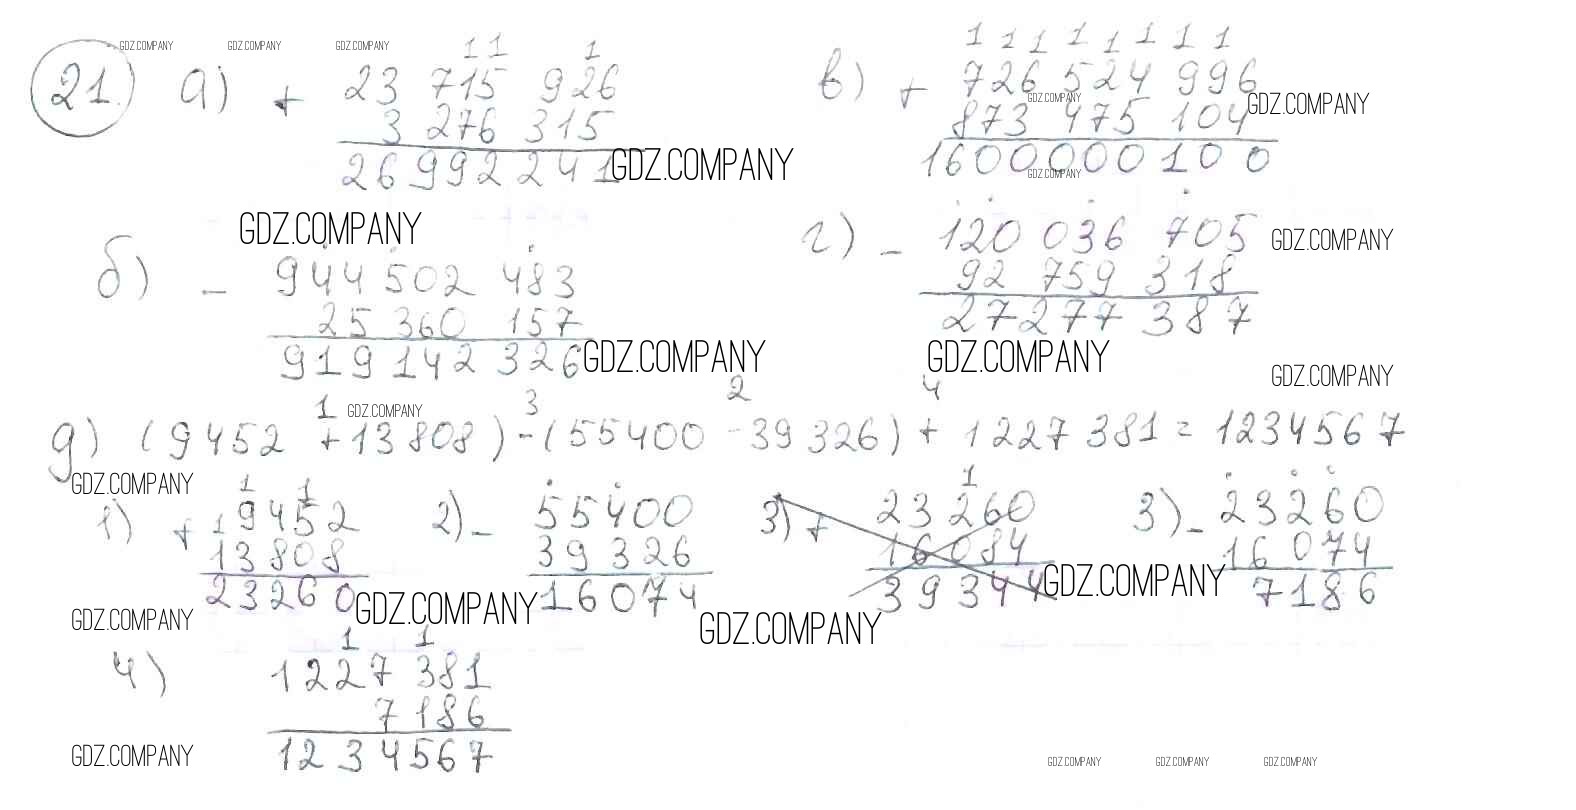 GDZ.COMPANY GDZ.COMPANY GDZ.COMPANY
21. а) + 23 715 926
3 276 315
26 992 241
GDZ.COMPANY
в) + 726 524 996
873 475 104
1600 000 100
GDZ.COMPANY
GDZ.COMPANY
GDZ.COMPANY
GDZ.COMPANY
б) - 944 502 483
25 360 157
919 142 326
GDZ.COMPANY
г) - 120 036 705
92 759 318
27 277 387
GDZ.COMPANY
GDZ.COMPANY
GDZ.COMPANY
1 GDZ.COMPANY 3 2 4
д) (9452 + 13 808) - (55400 - 39 326) + 1227 381 = 1234567
GDZ.COMPANY
1) + 19452
13808
23260
GDZ.COMPANY
2) - 55400
39 326
16074
3) + 23 260
16084
39344
GDZ.COMPANY
3) - 23260
16 074
7186
GDZ.COMPANY
GDZ.COMPANY
4) 1227 381
7186
1234567
GDZ.COMPANY
GDZ.COMPANY GDZ.COMPANY GDZ.COMPANY